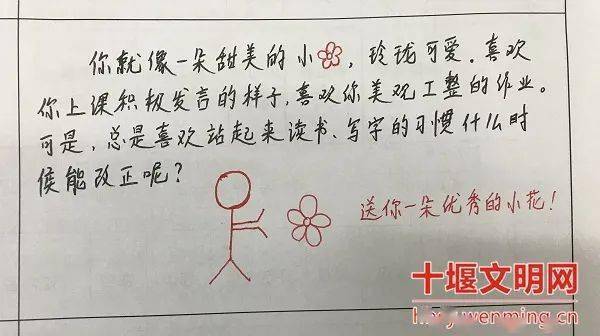 你就像一朵甜美的小，玲珑可爱。喜欢
你上课积极发言的样子，喜欢你美观工整的作业。
可是，总是喜欢站起来读书、写字的习惯什么时
候能改正呢？
送你一朵优秀的小花！
十堰文明网